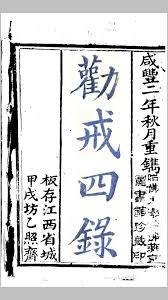 咸豐二年秋月重鐫
勸戒四錄
板存江西省城
甲戌坊乙照齋